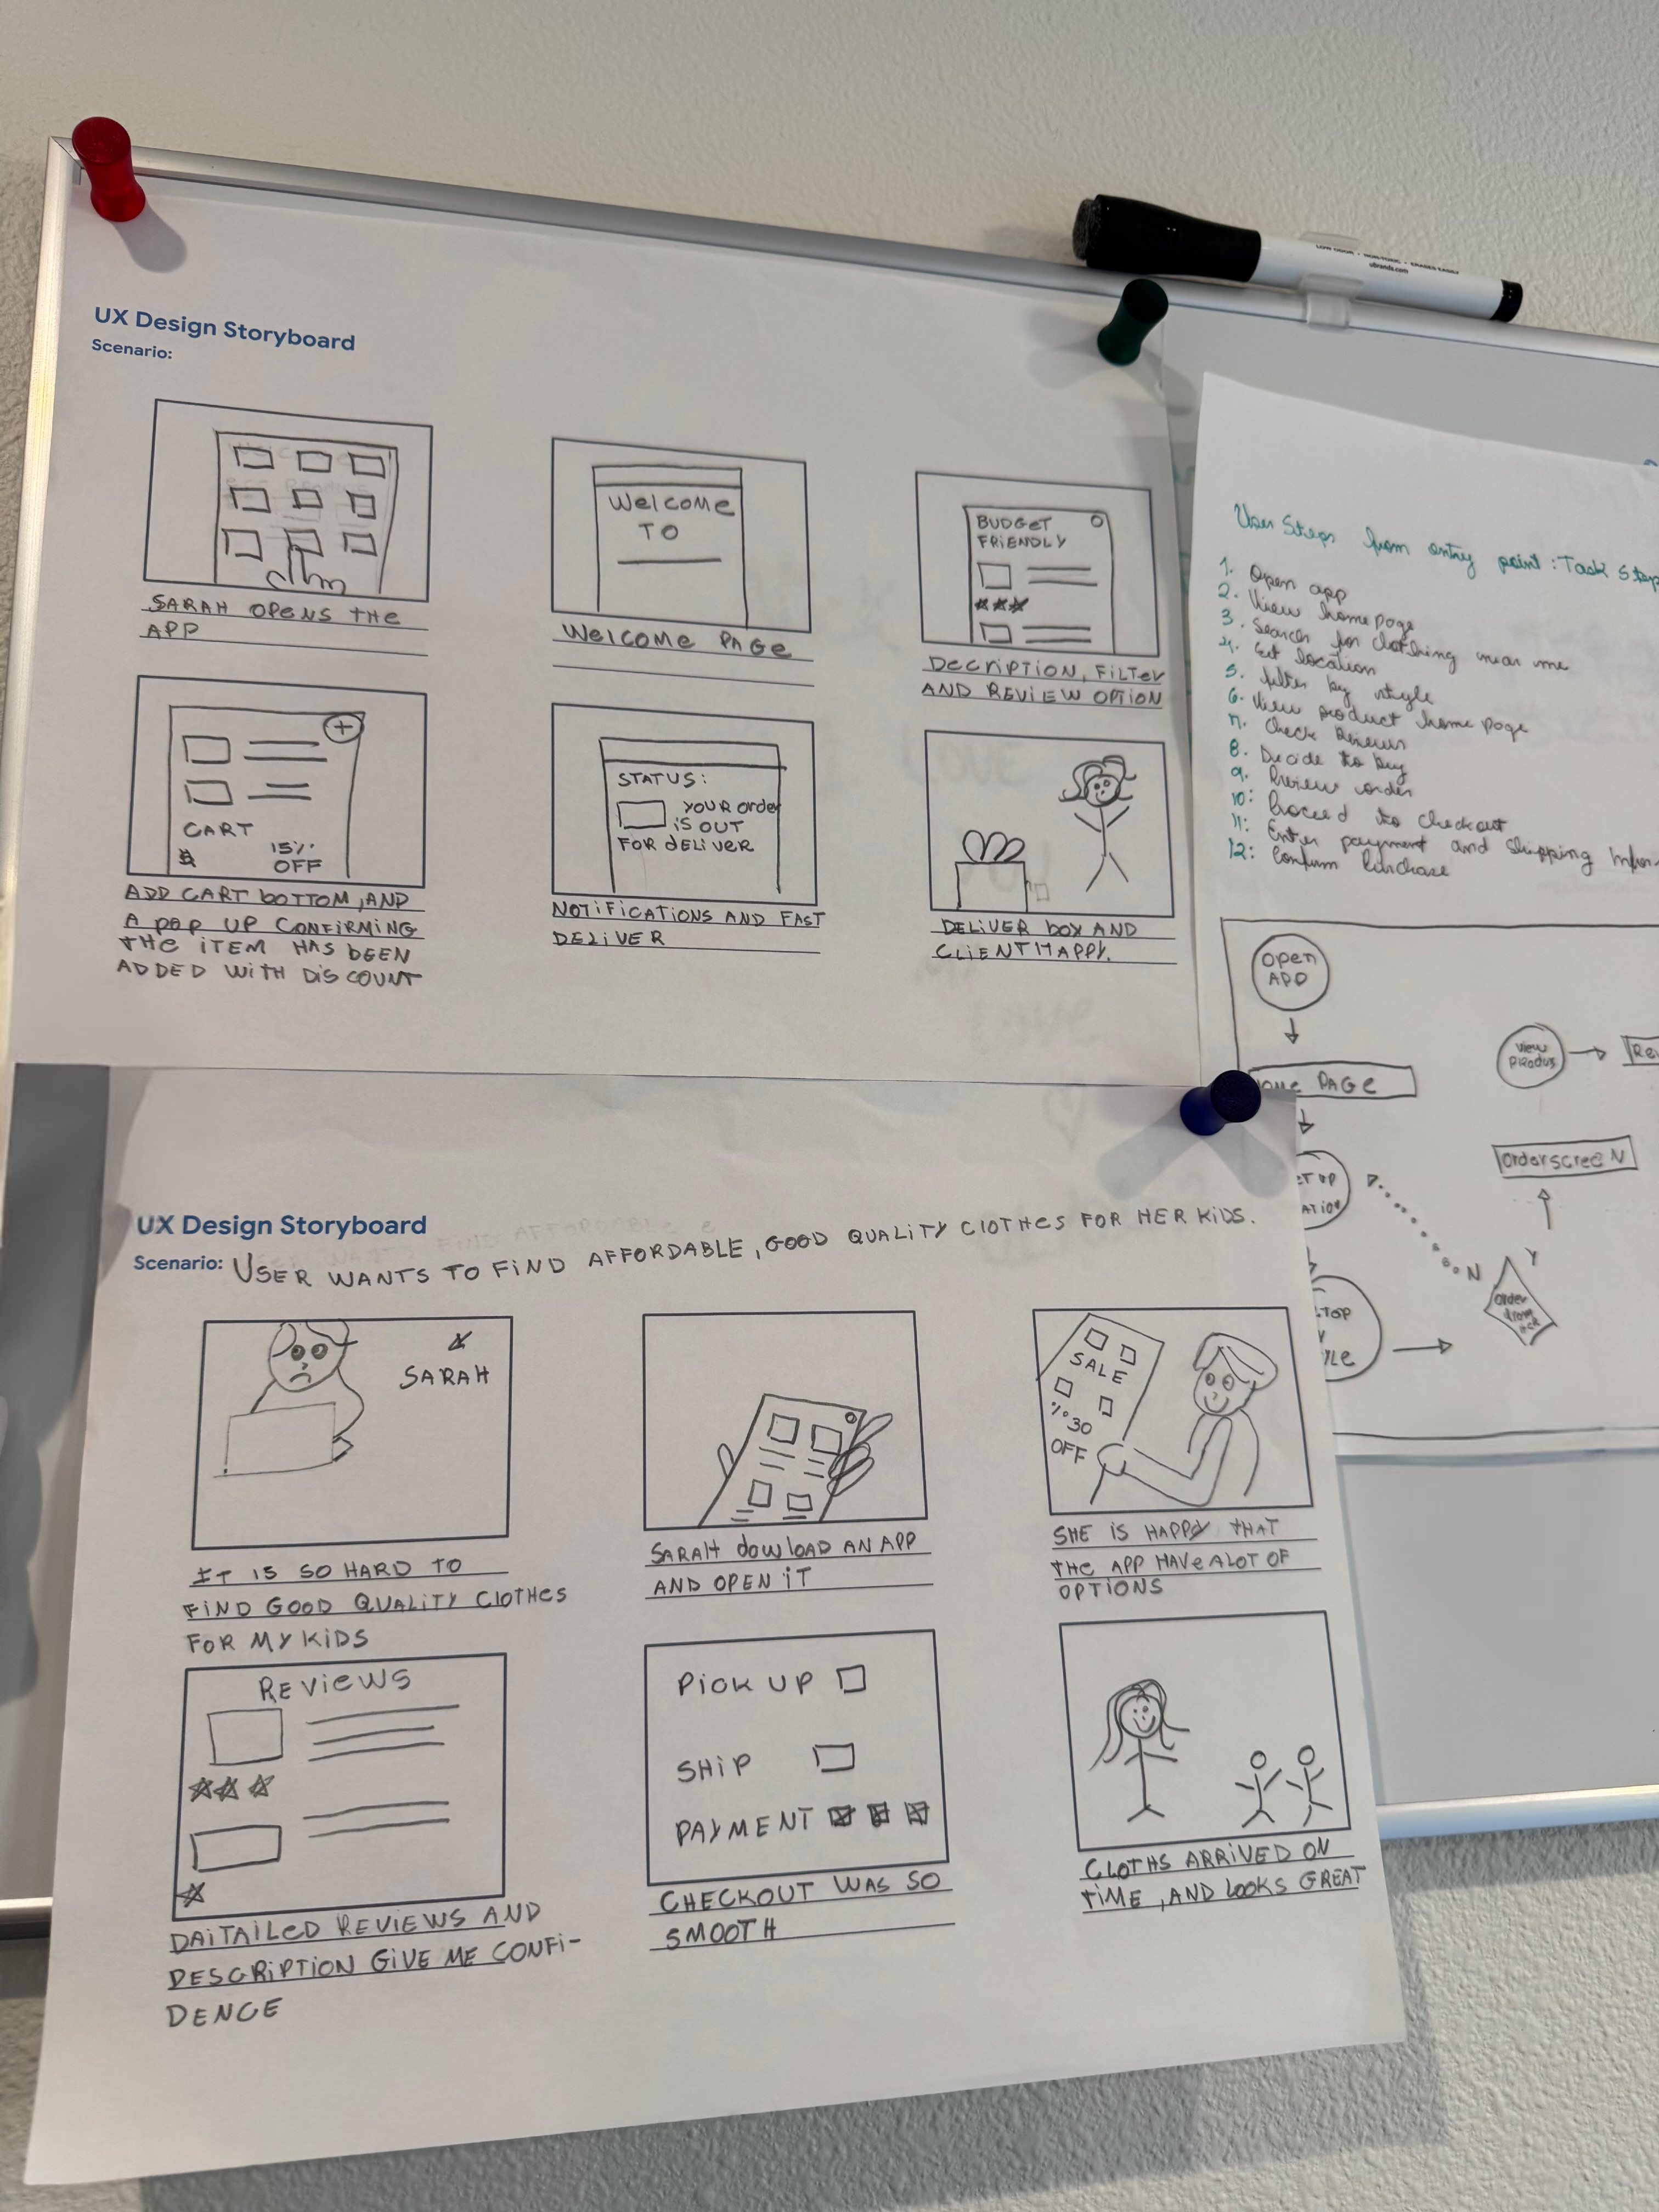 LOW ODOR • NON-TOXIC • ERASES EASILY
ubrands.com
UX Design Storyboard
Scenario:
SARAH OPENS THE
APP
WELCOME
TO
WELCOME PAGE
BUDGET
FRIENDLY
DECRIPTION, FILTER
AND REVIEW OPTION
CART
15%
OFF
ADD CART BOTTOM, AND
A POP UP CONFIRMING
THE ITEM HAS BEEN
ADDED WITH DISCOUNT
STATUS:
YOUR ORDER
IS OUT
FOR DELIVER
NOTIFICATIONS AND FAST
DELIVER
DELIVER BOX AND
CLIENT HAPPY.
User Steps from entry point: Task Step
1. Open app
2. View home page
3. Search for clothing near me
4. Set location
5. filter by style
6. View product home page
7. Check Reviews
8. Decide to buy
9. Review order
10: Proceed to checkout
11: Enter payment and Shipping Infor
12: Confirm Purchase
OPEN
APP
PAGE
VIEW
Order screeN
Y
N
order
UX Design Storyboard
Scenario: USER WANTS TO FIND AFFORDABLE, GOOD QUALITY CLOTHES FOR HER KIDS.
SARAH
IT IS SO HARD TO
FIND GOOD QUALITY CLOTHES
FOR MY KIDS
SARAH DOWLOAD AN APP
AND OPEN IT
SALE
%30
OFF
SHE IS HAPPY THAT
THE APP HAVE A LOT OF
OPTIONS
REVIEWS
DAITAILED REVIEWS AND
DESCRIPTION GIVE ME CONFI-
DENCE
PICK UP
SHIP
PAYMENT
CHECKOUT WAS SO
SMOOTH
CLOTHS ARRIVED ON
TIME, AND LOOKS GREAT